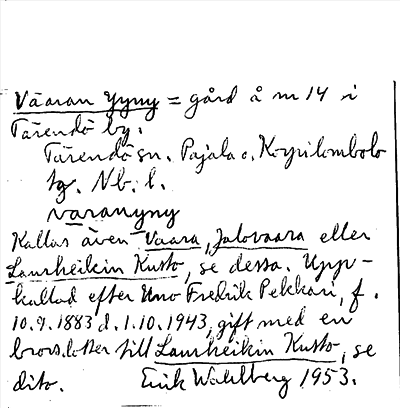 Vääran Yyny = gård å nr 14 i
Tärendö by.
Tärendö sn. Pajala o. Korpilombolo
tg. Nb. l.
väranyny
Kallas även Vaara, Jalovaara eller
Lauriheikin Kusto, se dessa. Upp-
kallad efter Uno Fredrik Pekkari, f.
10.9.1883 d. 1.10.1943, gift med en
brorsdotter till Lauriheikin Kusto, se
dito. Erik Wahlberg 1953.